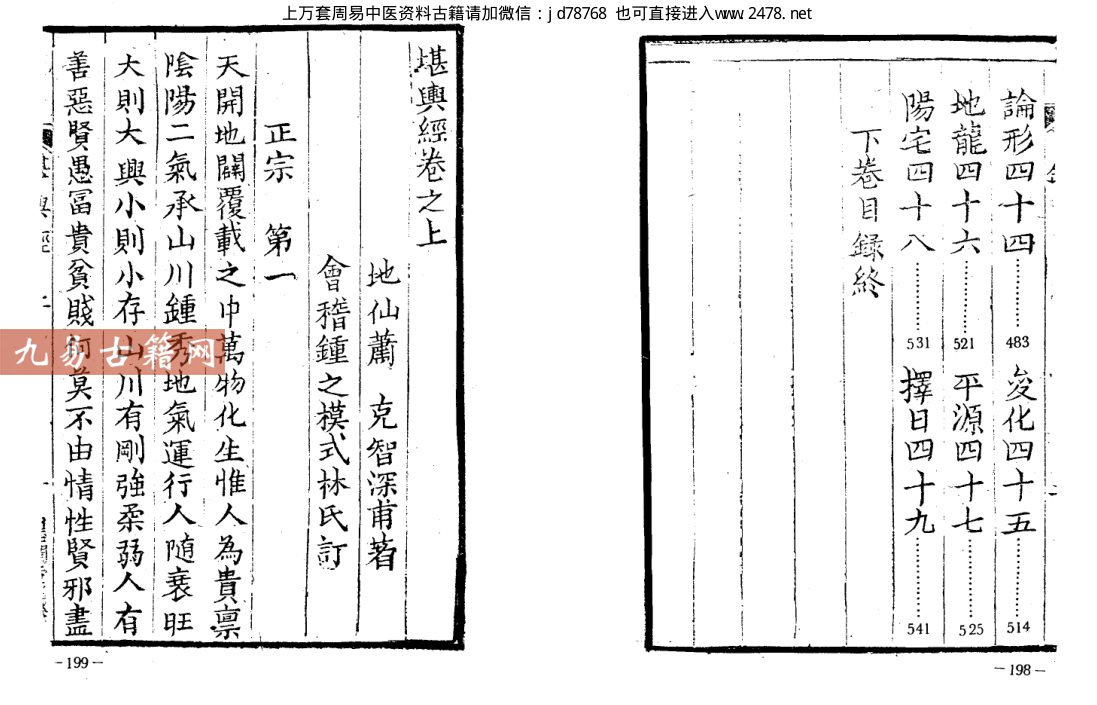 上万套周易中医资料古籍请加微信：jd78768 也可直接进入www.2478.net
論形四十四……483 変化四十五……514
地龍四十六……521 平源四十七……525
陽宅四十八……531 擇日四十九……541
下巻目録終
-198-
堪輿經卷之上
地仙蕭 克智深甫著
會稽鍾之模式林氏訂
正宗 第一
天開地闢覆載之中萬物化生惟人為貴禀
陰陽二氣承山川鍾秀地氣運行人随衰旺
大則大興小則小存山川有剛強柔弱人有
善惡賢愚冨貴貧賤何莫不由情性賢邪盡
-199-
九易古籍网